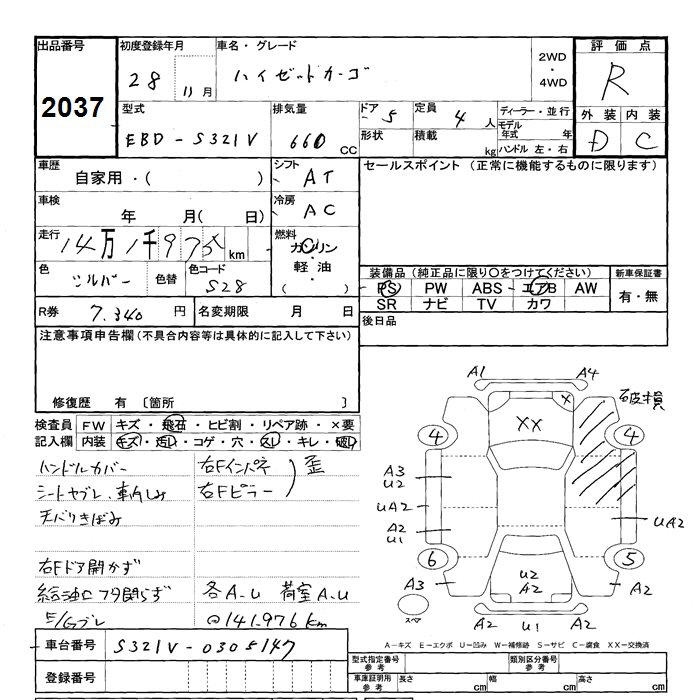 出品番号 初度登録年月 車名・グレード 評価点
2037
28 11月 ハイゼットカーゴ 2WD・4WD R
型式 排気量 ドア 5 定員 4人 ディーラー・並行
EBD-S321V 660 CC 形状 積載 kg モデル年式 年 ハンドル 左・右
外装 内装
D C
車歴 自家用・( ) シフト AT
セールスポイント (正常に機能するものに限ります)
車検 年 月( 日) 冷房 AC
走行 14万1千97 km 燃料 ガソリン・軽油・( )
色 シルバー 色替 色コード S28
装備品(純正品に限り○をつけてください) 新車保証書
PS PW ABS エアB AW 有・無
SR ナビ TV カワ
R券 7.340 円 名変期限 月 日
後日品
注意事項申告欄(不具合内容等は具体的に記入して下さい)
修復歴 有 〔箇所 〕
検査員記入欄 FW キズ・飛石・ヒビ割・リペア跡・×要
内装 キズ・汚れ・コゲ・穴・スレ・キレ・破れ
ハンドルカバー 右Fインパネ
シートヤブレ、車内しみ 右Fピラー 歪
天バリきばみ
右Fドア開かず
給油口フタ閉らず 各A.U 荷室A.U
E/Gブレ @141.976km
車台番号 S321V-0305147
登録番号
A1 A4
破損
XX X
4 4
A3
U2
UA2
A2
U1
UA2
6 5
A3 U2 A2 A2
スペア A2 U1 A2
A-キズ E-エクボ U-凹み W-補修跡 S-サビ C-腐食 XX-交換済
型式指定番号 参考 類別区分番号 参考
車庫証明用 参考 長さ cm 幅 cm 高さ cm